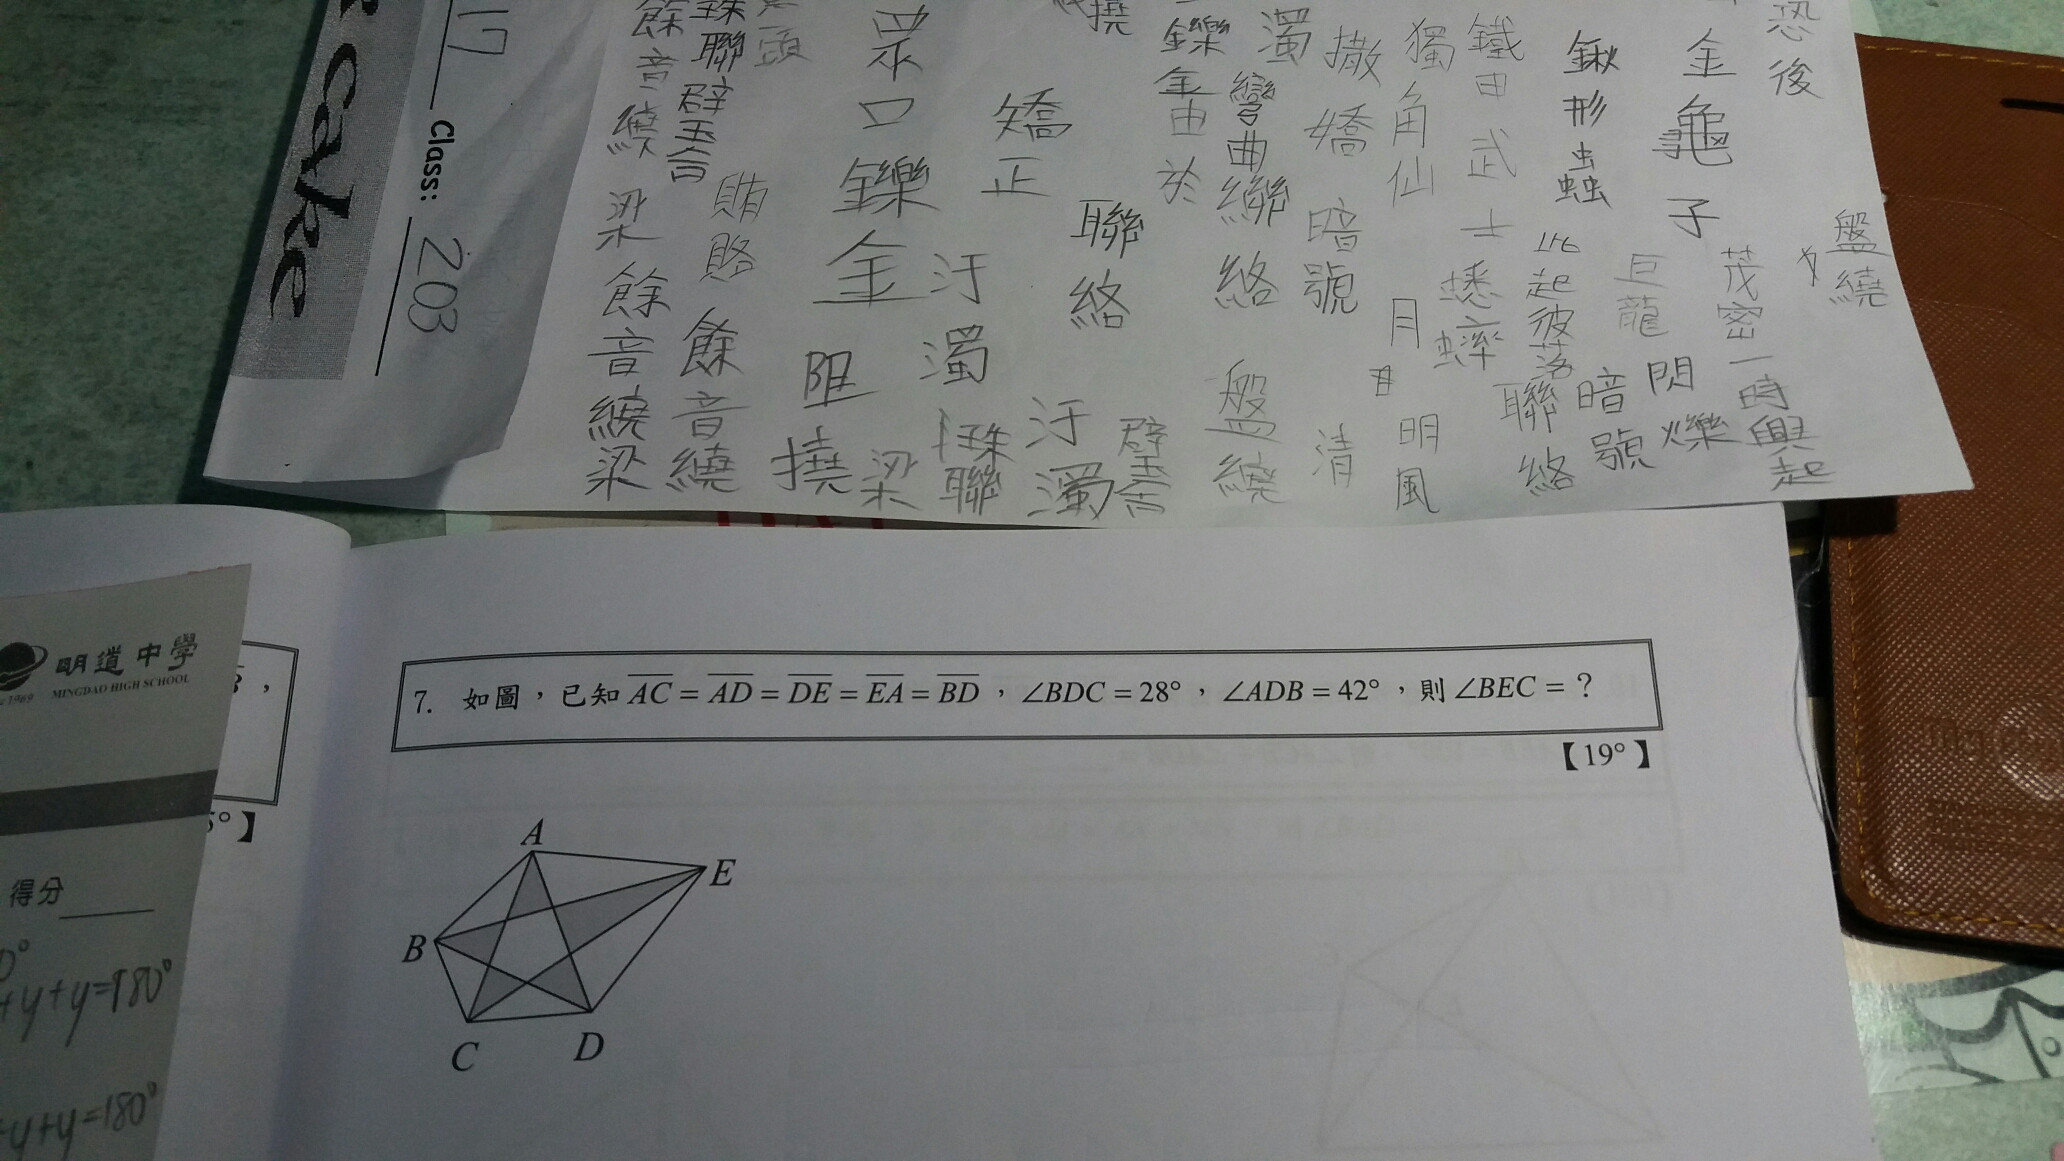 cake
17
Class: 203
恐後
金龜子
盤繞
茂密
一時興起
鍬形蟲
巨龍
閃爍
暗號
鐵甲武士
此起彼落
聯絡
獨角仙
蟋蟀
月明風清
撒嬌
暗號
濁
彎曲
聯絡
盤繞
鑠金
由於
撓
矯正
聯絡
汙濁
璧合
眾口鑠金
汙濁
阻撓
梁
珠聯
珠聯璧合
賄賂
餘音繞
餘音繞梁
餘音繞梁
明道中學
MINGDAO HIGH SCHOOL
1969
得分
+y+y=180°
+y+y=180°
5°】
7. 如圖,已知 AC = AD = DE = EA = BD,∠BDC = 28°,∠ADB = 42°,則 ∠BEC = ?
【19°】
A
E
B
C
D